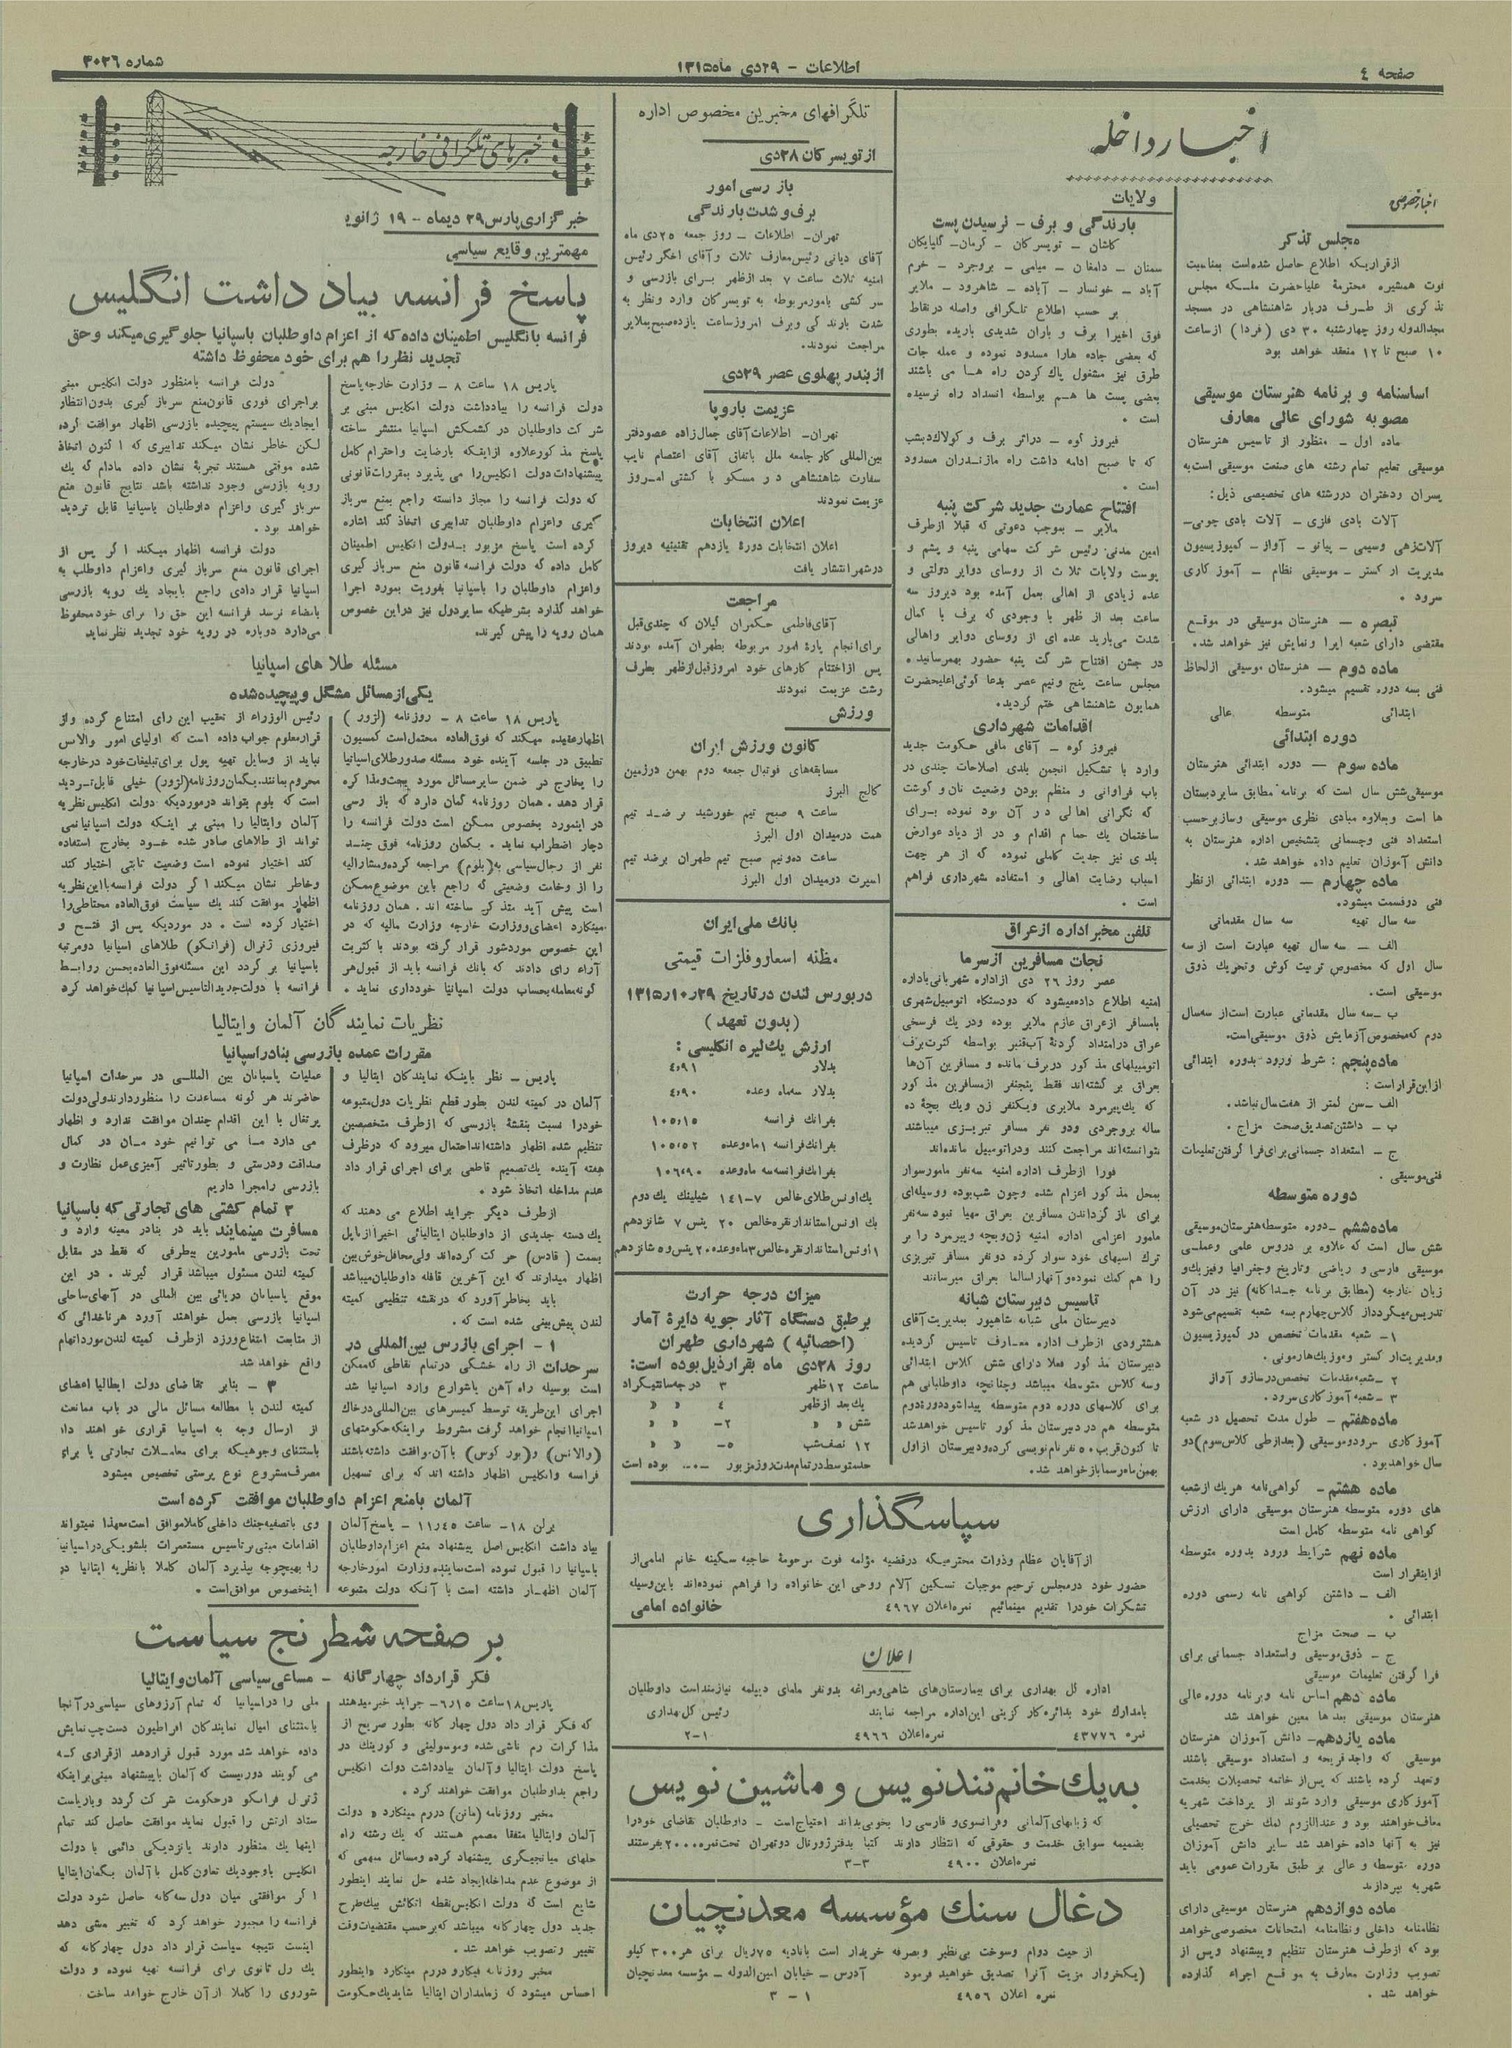 صفحه ٤
اطلاعات - ٢٩ دی ماه ١٣١٥
شماره ٣٠٢٦
اخبار داخله
اخبار خصوصی
مجلس تذکر
ازقراریکه اطلاع حاصل شده است بمناسبت
فوت همشیره محترمهٔ علیاحضرت ملکه مجلس
تذکری از طرف دربار شاهنشاهی در مسجد
مجدالدوله روز چهارشنبه ٣٠ دی (فردا) ازساعت
١٠ صبح تا ١٢ منعقد خواهد بود
اساسنامه و برنامه هنرستان موسیقی
مصوبه شورای عالی معارف
ماده اول – منظور از تاسیس هنرستان
موسیقی تعلیم تمام رشته های صنعت موسیقی است به
پسران ودختران دررشته های تخصیصی ذیل:
آلات بادی فلزی – آلات بادی چوبی–
آلات زهی وسیمی – پیانو – آواز – کمپوزیسیون
مدیریت ارکستر – موسیقی نظام – آموزکاری
سرود .
تبصره – هنرستان موسیقی در موقع
مقتضی دارای شعبه اپرا ونمایش نیز خواهد شد.
ماده دوم – هنرستان موسیقی ازلحاظ
فنی بسه دوره تقسیم میشود.
ابتدائی متوسطه عالی
دوره ابتدائی
ماده سوم – دوره ابتدائی هنرستان
موسیقی شش سال است که برنامه مطابق سایردبستان
ها است وبعلاوه مبادی نظری موسیقی وسازبرحسب
استعداد فنی وجسمانی بتشخیص اداره هنرستان به
دانش آموزان تعلیم داده خواهد شد.
ماده چهارم – دوره ابتدائی ازنظر
فنی دوقسمت میشود.
سه سال تهیه سه سال مقدماتی
الف – سه سال تهیه عبارت است ازسه
سال اول که مخصوص تربیت گوش وتحریک ذوق
موسیقی است.
ب – سه سال مقدماتی عبارت است ازسه سال
دوم که مخصوص آزمایش ذوق موسیقی است.
ماده پنجم : شرط ورود بدوره ابتدائی
ازاین قرار است :
الف – سن کمتر از هفت سال نباشد.
ب – داشتن تصدیق صحت مزاج .
ج – استعداد جسمانی برای فرا گرفتن تعلیمات
فنی موسیقی .
دوره متوسطه
ماده ششم – دوره متوسطه هنرستان موسیقی
شش سال است که علاوه بر دروس علمی وعملی
موسیقی فارسی و ریاضی وتاریخ وجغرافیا وفیزیک و
زبان خارجه (مطابق برنامه جداگانه) نیز در آن
تدریس میگردد از کلاس چهارم بسه شعبه تقسیم می شود
١- شعبه مقدمات تخصص در کمپوزیسیون
ومدیریت ارکستر وموزیک هارمونی .
٢ – شعبه مقدمات تخصص درساز و آواز
٣ – شعبه آموزکاری سرود .
ماده هفتم – طول مدت تحصیل در شعبه
آموزکاری سرود وموسیقی (بعدازطی کلاس سوم) دو
سال خواهد بود .
ماده هشتم – گواهی نامه هریک ازشعبه
های دوره متوسطه هنرستان موسیقی دارای ارزش
گواهی نامه متوسطه کامل است
ماده نهم شرایط ورود بدوره متوسطه
ازاینقرار است
الف – داشتن گواهی نامه رسمی دوره
ابتدائی .
ب – صحت مزاج
ج – ذوق موسیقی واستعداد جسمانی برای
فرا گرفتن تعلیمات موسیقی
ماده دهم اساس نامه وبرنامه دوره عالی
هنرستان موسیقی بعدها معین خواهد شد
ماده یازدهم – دانش آموزان هنرستان
موسیقی که واجد قریحه و استعداد موسیقی باشند
وتعهد کرده باشند که پس از خاتمه تحصیلات بخدمت
آموزکاری موسیقی وارد شوند از پرداخت شهریه
معاف خواهند بود و عنداللزوم کمک خرج تحصیلی
نیز به آنها داده خواهد شد سایر دانش آموزان
دوره متوسطه و عالی بر طبق مقررات عمومی باید
شهریه بپردازند
ماده دوازدهم هنرستان موسیقی دارای
نظامنامه داخلی ونظامنامه امتحانات مخصوصی خواهد
بود که ازطرف هنرستان تنظیم وپیشنهاد وپس از
تصویب وزارت معارف به موقع اجراء گذارده
خواهد شد .
ولایات
بارندگی و برف – نرسیدن پست
کاشان – تویسرکان – کرمان – گلپایگان
سمنان – دامغان – میامی – بروجرد – خرم
آباد – خونسار – آباده – شاهرود – ملایر
بر حسب اطلاع تلگرافی واصله درنقاط
فوق اخیرا برف و باران شدیدی باریده بطوری
که بعضی جاده هارا مسدود نموده و عمله جات
طرق نیز مشغول پاک کردن راه ها می باشند
بعضی پست ها هم بواسطه انسداد راه نرسیده
است .
فیروز کوه – دراثر برف و کولاک دیشب
که تا صبح ادامه داشت راه مازندران مسدود
است .
افتتاح عمارت جدید شرکت پنبه
ملایر – بموجب دعوتی که قبلا ازطرف
امین مدنی رئیس شرکت سهامی پنبه و پشم و
پوست ولایات ثلاث از روسای دوایر دولتی و
عده زیادی از اهالی بعمل آمده بود دیروز سه
ساعت بعد از ظهر با وجودی که برف با کمال
شدت می بارید عده ای از روسای دوایر واهالی
در جشن افتتاح شرکت پنبه حضور بهمرسانیده
مجلس ساعت پنج ونیم عصر بدعا گوئی اعلیحضرت
همایون شاهنشاهی ختم گردید.
اقدامات شهرداری
فیروز کوه – آقای مافی حکومت جدید
وارد با تشکیل انجمن بلدی اصلاحات چندی در
باب فراوانی و منظم بودن وضعیت نان و گوشت
که نگرانی اهالی در آن بود نموده برای
ساختمان یک حمام اقدام و در ازدیاد عوارض
بلدی نیز جدیت کاملی نموده که از هر جهت
اسباب رضایت اهالی و استفاده شهرداری فراهم
است .
تلفن مخبر اداره ازعراق
نجات مسافرین ازسرما
عصر روز ٢٦ دی ازاداره شهربانی باداره
امنیه اطلاع داده میشود که دودستگاه اتومبیل شهری
بامسافر ازعراق عازم ملایر بوده ودریک فرسخی
عراق درامتداد گردنهٔ آب قنبر بواسطه کثرت برف
اتومبیلهای مذکور دربرف مانده و مسافرین آن ها
بعراق برگشته اند فقط پنجنفر ازمسافرین مذکور
که یک پیرمرد ملایری ویکنفر زن ویک بچهٔ ده
ساله بروجردی ودو نفر مسافر تبریزی میباشند
نتوانسته اند مراجعت کنند ودراتومبیل مانده اند
فورا ازطرف اداره امنیه سه نفر مامورسوار
بمحل مذکور اعزام شده وچون شب بوده ووسیله ای
برای باز گرداندن مسافرین بعراق مهیا نبود سه نفر
مامور اعزامی اداره امنیه زن وبچه وپیرمرد را بر
ترک اسبهای خود سوار کرده دونفر مسافر تبریزی
را هم کمک نموده وآنهارا سالما بعراق میرسانند
تاسیس دبیرستان شبانه
دبیرستان ملی شبانه شاهپور بمدیریت آقای
هشترودی ازطرف اداره معارف تاسیس گردیده
دبیرستان مذکور فعلا دارای شش کلاس ابتدائی
وسه کلاس متوسطه میباشد وچنانچه داوطلبانی هم
برای کلاسهای دوره دوم متوسطه پیداشود دوره دوم
متوسطه هم در دبیرستان مذکور تاسیس خواهد شد
تا کنون قریب ٥٠ نفر نام نویسی کرده ودبیرستان ازاول
بهمن ماه رسما باز خواهد شد.
تلگرافهای مخبرین مخصوص اداره
از تویسرکان ٢٨ دی
بازرسی امور
برف و شدت بارندگی
تهران – اطلاعات – روز جمعه ٢٥ دی ماه
آقای دیانی رئیس معارف ثلاث وآقای اخگر رئیس
امنیه ثلاث ساعت ٧ بعد ازظهر برای بازرسی و
سرکشی بامور مربوطه به تویسرکان وارد ونظر به
شدت بارندگی وبرف امروز ساعت یازده صبح بملایر
مراجعت نمودند.
از بندر پهلوی عصر ٢٩ دی
عزیمت باروپا
تهران – اطلاعات آقای جمال زاده عضو دفتر
بین المللی کار جامعه ملل باتفاق آقای اعتصام نایب
سفارت شاهنشاهی در مسکو با کشتی امروز
عزیمت نمودند
اعلان انتخابات
اعلان انتخابات دورهٔ یازدهم تقنینیه دیروز
درشهر انتشار یافت
مراجعت
آقای فاطمی حکمران گیلان که چندی قبل
برای انجام پارهٔ امور مربوطه بطهران آمده بودند
پس ازاختتام کارهای خود امروز قبل ازظهر بطرف
رشت عزیمت نمودند
ورزش
کانون ورزش ایران
مسابقه های فوتبال جمعه دوم بهمن درزمین
کالج البرز
ساعت ٩ صبح تیم خورشید بر ضد تیم
همت درمیدان اول البرز
ساعت ده ونیم صبح تیم طهران برضد تیم
اسپرت درمیدان اول البرز
بانک ملی ایران
مظنه اسعار و فلزات قیمتی
دربورس لندن در تاریخ ١٣١٥٫١٠٫٢٩
(بدون تعهد)
ارزش یک لیره انگلیسی :
بدلار ٤٫٩١
بدلار سه ماه وعده ٤٫٩٠
بفرانک فرانسه ١٠٥٫١٥
بفرانک فرانسه ١ ماه وعده ١٠٥٫٥٢
بفرانک فرانسه سه ماه وعده ١٠٦٫٩٠
یک اونس طلای خالص ٧–١٤١ شیلینگ یک دوم
یک اونس استاندارد نقره خالص ٢٠ پنس ٧ شانزدهم
١ اونس استاندارد نقره خالص ٣ ماه وعده ٢٠ پنس وه شانزدهم
میزان درجه حرارت
بر طبق دستگاه آثار جویه دایرهٔ آمار
(احصائیه) شهرداری طهران
روز ٢٨ دی ماه بقرار ذیل بوده است :
ساعت ١٢ ظهر ٣ درجه سانتیگراد
یک بعد ازظهر ٤ « «
شش « « ٢– « «
١٢ نصف شب ٥– « «
حد متوسط درتمام مدت روز مزبور بوده است
سپاسگذاری
از آقایان عظام وذوات محترمیکه درقضیه مؤلمه فوت مرحومهٔ حاجیه سکینه خانم امامی از
حضور خود درمجلس ترحیم موجبات تسکین آلام روحی این خانواده را فراهم نموده اند باین وسیله
تشکرات خودرا تقدیم مینمائیم نمره اعلان ٤٩٦٧ خانواده امامی
اعلان
اداره کل بهداری برای بیمارستان های شاهی ومراغه بدونفر مامای دیپلمه نیازمند است داوطلبان
بامدارک خود بدائره کار گزینی این اداره مراجعه نمایند رئیس کل بهداری
نمره ٤٣٧٧٦ نمره اعلان ٤٩٦٦ ٢-١
به یک خانم تند نویس و ماشین نویس
که زبانهای آلمانی وفرانسوی و فارسی را بخوبی بداند احتیاج است – داوطلبان تقاضای خودرا
بضمیمه سوابق خدمت و حقوقی که انتظار دارند کتبا بدفتر ژورنال دوتهران تحت نمره ٢٠٠٠ بفرستند
نمره اعلان ٤٩٠٠ ٣-٣
دغال سنگ مؤسسه معدنچیان
از حیث دوام وسوخت بی نظیر وبصرفه خریدار است باتادیه ٧٥ ریال برای هر ٣٠٠ کیلو
(یکخروار مزیت آنرا تصدیق خواهید فرمود آدرس – خیابان امین الدوله – مؤسسه معدنچیان
نمره اعلان ٤٩٥٦ ١ - ٣
خبرهای تلگرافی خارجه
خبرگزاری پارس ٢٩ دیماه – ١٩ ژانویه
مهمترین وقایع سیاسی
پاسخ فرانسه بیاد داشت انگلیس
فرانسه بانگلیس اطمینان داده که از اعزام داوطلبان باسپانیا جلوگیری میکند وحق
تجدید نظر را هم برای خود محفوظ داشته
پاریس ١٨ ساعت ٨ – وزارت خارجه پاسخ
دولت فرانسه را بیادداشت دولت انگلیس مبنی بر
شرکت داوطلبان در کشمکش اسپانیا منتشر ساخته
پاسخ مذکور علاوه ازاینکه بارضایت واحترام کامل
پیشنهادات دولت انگلیس را می پذیرد بمقررات قانونی
که دولت فرانسه را مجاز دانسته راجع بمنع سرباز
گیری واعزام داوطلبان تدابیری اتخاذ کند اشاره
کرده است پاسخ مزبور بدولت انگلیس اطمینان
کامل داده که دولت فرانسه قانون منع سرباز گیری
واعزام داوطلبان را باسپانیا بفوریت بمورد اجرا
خواهد گذارد بشرطیکه سایر دول نیز دراین خصوص
همان رویه را پیش گیرند.
دولت فرانسه بامنظور دولت انگلیس مبنی
براجرای فوری قانون منع سرباز گیری بدون انتظار
ایجاد یک سیستم پیچیده بازرسی اظهار موافقت کرده
لکن خاطر نشان میکند تدابیری که اکنون اتخاذ
شده موقتی هستند تجربهٔ نشان داده مادام که یک
رویه بازرسی وجود نداشته باشد نتایج قانون منع
سرباز گیری واعزام داوطلبان باسپانیا قابل تردید
خواهد بود .
دولت فرانسه اظهار میکند اگر پس از
اجرای قانون منع سرباز گیری واعزام داوطلب به
اسپانیا قرار دادی راجع بایجاد یک رویه بازرسی
بامضاء نرسد فرانسه این حق را برای خود محفوظ
می دارد دوباره در رویه خود تجدید نظر نماید
مسئله طلا های اسپانیا
یکی از مسائل مشگل و پیچیده شده
پاریس ١٨ ساعت ٨ – روزنامه (لزور)
اظهار عقیده میکند که فوق العاده محتمل است کمسیون
تطبیق در جلسه آینده خود مسئله صدور طلای اسپانیا
را بخارج در ضمن سایر مسائل مورد بحث ومذاکره
قرار دهد. همان روزنامه گمان دارد که باز رسی
در اینمورد بخصوص ممکن است دولت فرانسه را
دچار اضطراب نماید . بگمان روزنامه فوق چند
نفر از رجال سیاسی به (بلوم) مراجعه کرده ومشارالیه
را از وخامت وضعیتی که راجع باین موضوع ممکن
است پیش آید متذکر ساخته اند . همان روزنامه
مینگارد اعضای ووزارت خارجه وزارت مالیه که در
این خصوص مورد شور قرار گرفته بودند با کثریت
آراء رای دادند که بانک فرانسه باید از قبول هر
گونه معامله بحساب دولت اسپانیا خودداری نماید .
رئیس الوزراء از تعقیب این رای امتناع کرده واز
قرار معلوم جواب داده است که اولیای امور والانس
نباید از وسایل تهیه پول برای تبلیغات خود درخارجه
محروم بمانند. بگمان روزنامه (لزور) خیلی قابل تردید
است که بلوم بتواند درموردیکه دولت انگلیس نظریه
آلمان وایتالیا را مبنی بر اینکه دولت اسپانیا نمی
تواند از طلاهای صادر شده خود بخارج استفاده
کند اختیار نموده است وضعیت ثابتی اختیار کند
وخاطر نشان میکند اگر دولت فرانسه بااین نظریه
اظهار موافقت کند یک سیاست فوق العاده محتاطی را
اختیار کرده است . در موردیکه پس از فتح و
فیروزی ژنرال (فرانکو) طلاهای اسپانیا دومرتبه
باسپانیا بر گردد این مسئله فوق العاده بحسن روابط
فرانسه با دولت جدید التاسیس اسپانیا کمک خواهد کرد
نظریات نمایندگان آلمان وایتالیا
مقررات عمده بازرسی بنادر اسپانیا
پاریس – نظر باینکه نمایندگان ایتالیا و
آلمان در کمیته لندن بطور قطع نظریات دول متبوعه
خودرا نسبت بنقشهٔ بازرسی که ازطرف متخصصین
تنظیم شده اظهار داشته اند احتمال میرود که درظرف
هفته آینده یک تصمیم قاطعی برای اجرای قرار داد
عدم مداخله اتخاذ شود .
ازطرف دیگر جراید اطلاع می دهند که
یک دسته جدیدی از داوطلبان ایتالیائی اخیرا ازناپل
بسمت (قادس) حرکت کرده اند ولی محافل خوش بین
اظهار میدارند که این آخرین قافله داوطلبان میباشد
باید بخاطر آورد که درنقشه تنظیمی کمیته
لندن پیش بینی شده است که .
١ - اجرای بازرس بین المللی در
سرحدات از راه خشکی در تمام نقاطی که ممکن
است بوسیله راه آهن یا شوارع وارد اسپانیا شد
اجرای این طریقه توسط کمیسرهای بین المللی درخاک
اسپانیا انجام خواهد گرفت مشروط براینکه حکومتهای
(والانس) و (بورکوس) باآن موافقت داشته باشند
فرانسه وانگلیس اظهار داشته اند که برای تسهیل
عملیات پاسبانان بین المللی در سرحدات اسپانیا
حاضرند هر گونه مساعدت را منظور دارند ولی دولت
پرتقال با این اقدام چندان موافقت ندارد و اظهار
می دارد ما می توانیم خود مان در کمال
صداقت ودرستی و بطور تاثیر آمیزی عمل نظارت و
بازرسی رامجرا داریم
٢ تمام کشتی های تجارتی که باسپانیا
مسافرت مینمایند باید در بنادر معینه وارد و
تحت بازرسی مامورین بیطرفی که فقط در مقابل
کمیته لندن مسئول میباشد قرار گیرند . در این
موقع پاسبانان دریائی بین المللی در آبهای ساحلی
اسپانیا بازرسی بعمل خواهند آورد هر ناخدائی که
از متابعت امتناع ورزد ازطرف کمیته لندن مورد اتهام
واقع خواهد شد
٣ – بنابر تقاضای دولت ایطالیا اعضای
کمیته لندن با مطالعه مسائل مالی در باب ممانعت
از ارسال وجه به اسپانیا قراری خواهند داد
باستثنای وجوهیکه برای معاملات تجارتی یا برای
مصرف مشروع نوع پرستی تخصیص میشود
آلمان بامنع اعزام داوطلبان موافقت کرده است
برلن ١٨– ساعت ١١٫٤٥ – پاسخ آلمان
بیاد داشت انگلیس اصل پیشنهاد منع اعزام داوطلبان
باسپانیا را قبول نموده است نماینده وزارت امور خارجه
آلمان اظهار داشته است با آنکه دولت متبوعه
وی باتصفیه جنک داخلی کاملا موافق است معهذا نمیتواند
اقدامات مبنی برتاسیس مستعمرات بلشویکی دراسپانیا
را بهیچوجه بپذیرد آلمان کاملا بانظریه ایتالیا در
اینخصوص موافق است .
بر صفحه شطرنج سیاست
فکر قرارداد چهارگانه – مساعی سیاسی آلمان وایتالیا
پاریس ١٨ ساعت ٦٫١٥– جراید خبر میدهند
که فکر قرار داد دول چهار گانه بطور صریح از
مذاکرات رم ناشی شده وموسولینی و گورینک در
پاسخ دولت ایتالیا وآلمان بیادداشت دولت انگلیس
راجع بداوطلبان موافقت خواهند کرد .
مخبر روزنامه (ماتن) دررم مینگارد « دولت
آلمان وایتالیا متفقا مصمم هستند که یک رشته راه
حلهای میانجیگری پیشنهاد کرده ومسائل مهمی که
از موضوع عدم مداخله ایجاد شده حل نمایند اینطور
شایع است که دولت انگلیس نقطه اتکائش یک طرح
جدید دول چهار گانه میباشد که برحسب مقتضیات وقت
تغییر وتصویب خواهد شد .
مخبر روزنامه فیگارو دررم مینگارد «اینطور
احساس میشود که زمامداران ایتالیا شاید یک حکومت
ملی را دراسپانیا که تمام آرزوهای سیاسی در آنجا
باستثنای امیال نمایندگان افراطیون دست چپ نمایش
داده خواهد شد مورد قبول قراردهد ازقراری که
می گویند دورنیست که آلمان باپیشنهاد مبنی براینکه
ژنرل فرانکو درحکومت شرکت گردد وبارریاست
ستاد ارتش را قبول نماید موافقت حاصل کند تمام
اینها یک منظور دارند یانزدیکی دائمی با دولت
انگلیس باوجود یک تعاون کامل با آلمان بگمان ایتالیا
اگر موافقتی میان دول سه گانه حاصل شود دولت
فرانسه را مجبور خواهد کرد که تغییر مشی دهد
اینست نتیجه سیاست قرار داد دول چهارگانه که
یک رل ثانوی برای فرانسه تهیه نموده و دولت
شوروی را کاملا از آن خارج خواهد ساخت